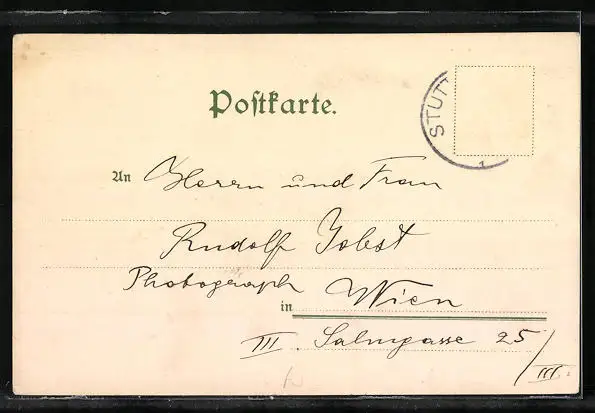 Postkarte.
STUT
1
An Herrn und Frau
Rudolf Jobst
Photograph
in Wien
III. Salmgasse 25/III.